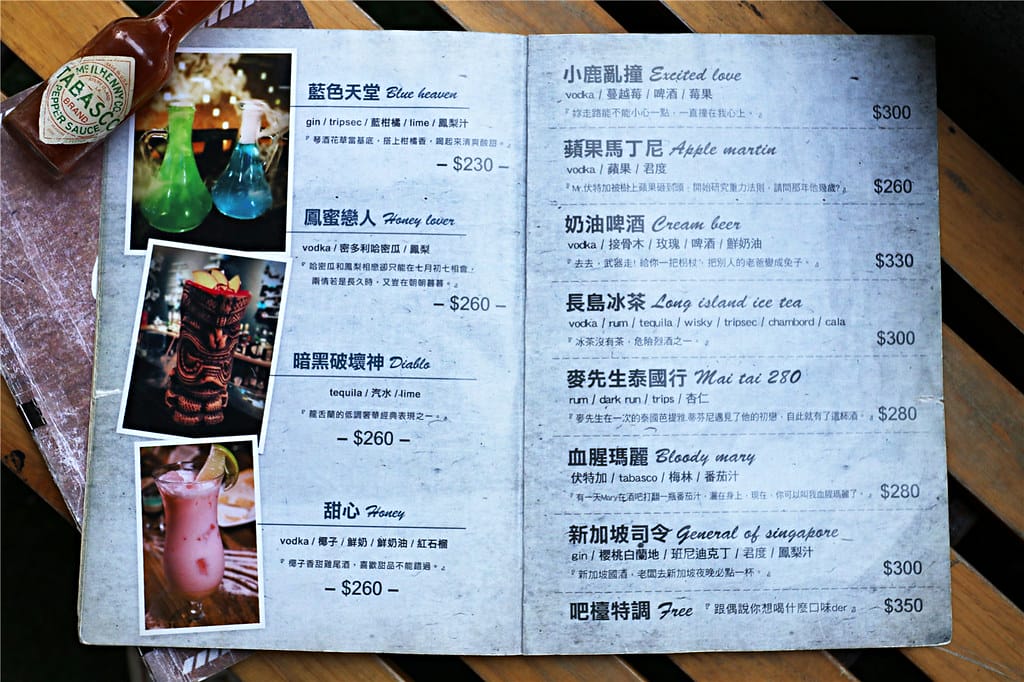 McILHENNY CO.
TABASCO
BRAND
PEPPER SAUCE
藍色天堂 Blue heaven
gin / tripsec / 藍柑橘 / lime / 鳳梨汁
『琴酒花草當基底，搭上柑橘香，喝起來清爽酸甜。』
– $230 –
鳳蜜戀人 Honey lover
vodka / 密多利哈密瓜 / 鳳梨
『哈密瓜和鳳梨相戀卻只能在七月初七相會，
兩情若是長久時，又豈在朝朝暮暮。』
– $260 –
暗黑破壞神 Diablo
tequila / 汽水 / lime
『龍舌蘭的低調奢華經典表現之一。』
– $260 –
甜心 Honey
vodka / 椰子 / 鮮奶 / 鮮奶油 / 紅石榴
『椰子香甜雞尾酒，喜歡甜品不能錯過。』
– $260 –
小鹿亂撞 Excited love
vodka / 蔓越莓 / 啤酒 / 莓果
『妳走路能不能小心一點，一直撞在我心上。』 $300
蘋果馬丁尼 Apple martin
vodka / 蘋果 / 君度
『Mr.伏特加被樹上蘋果砸到頭，開始研究重力法則，請問那年他幾歲?』 $260
奶油啤酒 Cream beer
vodka / 接骨木 / 玫瑰 / 啤酒 / 鮮奶油
『去去，武器走! 給你一把柺杖，把別人的老爸變成兔子。』 $330
長島冰茶 Long island ice tea
vodka / rum / tequila / wisky / tripsec / chambord / cala
『冰茶沒有茶，危險烈酒之一。』 $300
麥先生泰國行 Mai tai 280
rum / dark run / trips / 杏仁
『麥先生在一次的泰國芭提雅.蒂芬尼遇見了他的初戀，自此就有了這杯酒。』 $280
血腥瑪麗 Bloody mary
伏特加 / tabasco / 梅林 / 番茄汁
『有一天Mary在酒吧打翻一瓶番茄汁，灑在身上，現在，你可以叫我血腥瑪麗了。』 $280
新加坡司令 General of singapore
gin / 櫻桃白蘭地 / 班尼迪克丁 / 君度 / 鳳梨汁
『新加坡國酒，老闆去新加坡夜晚必點一杯。』 $300
吧檯特調 Free 『跟偶說你想喝什麼口味der』 $350